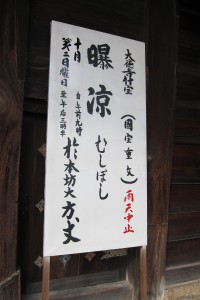 大徳寺什宝
(國宝重文)
雨天中止
曝凉
むしぼし
十月
第二日曜日
自午前九時
至午后三時半
於本坊大方丈